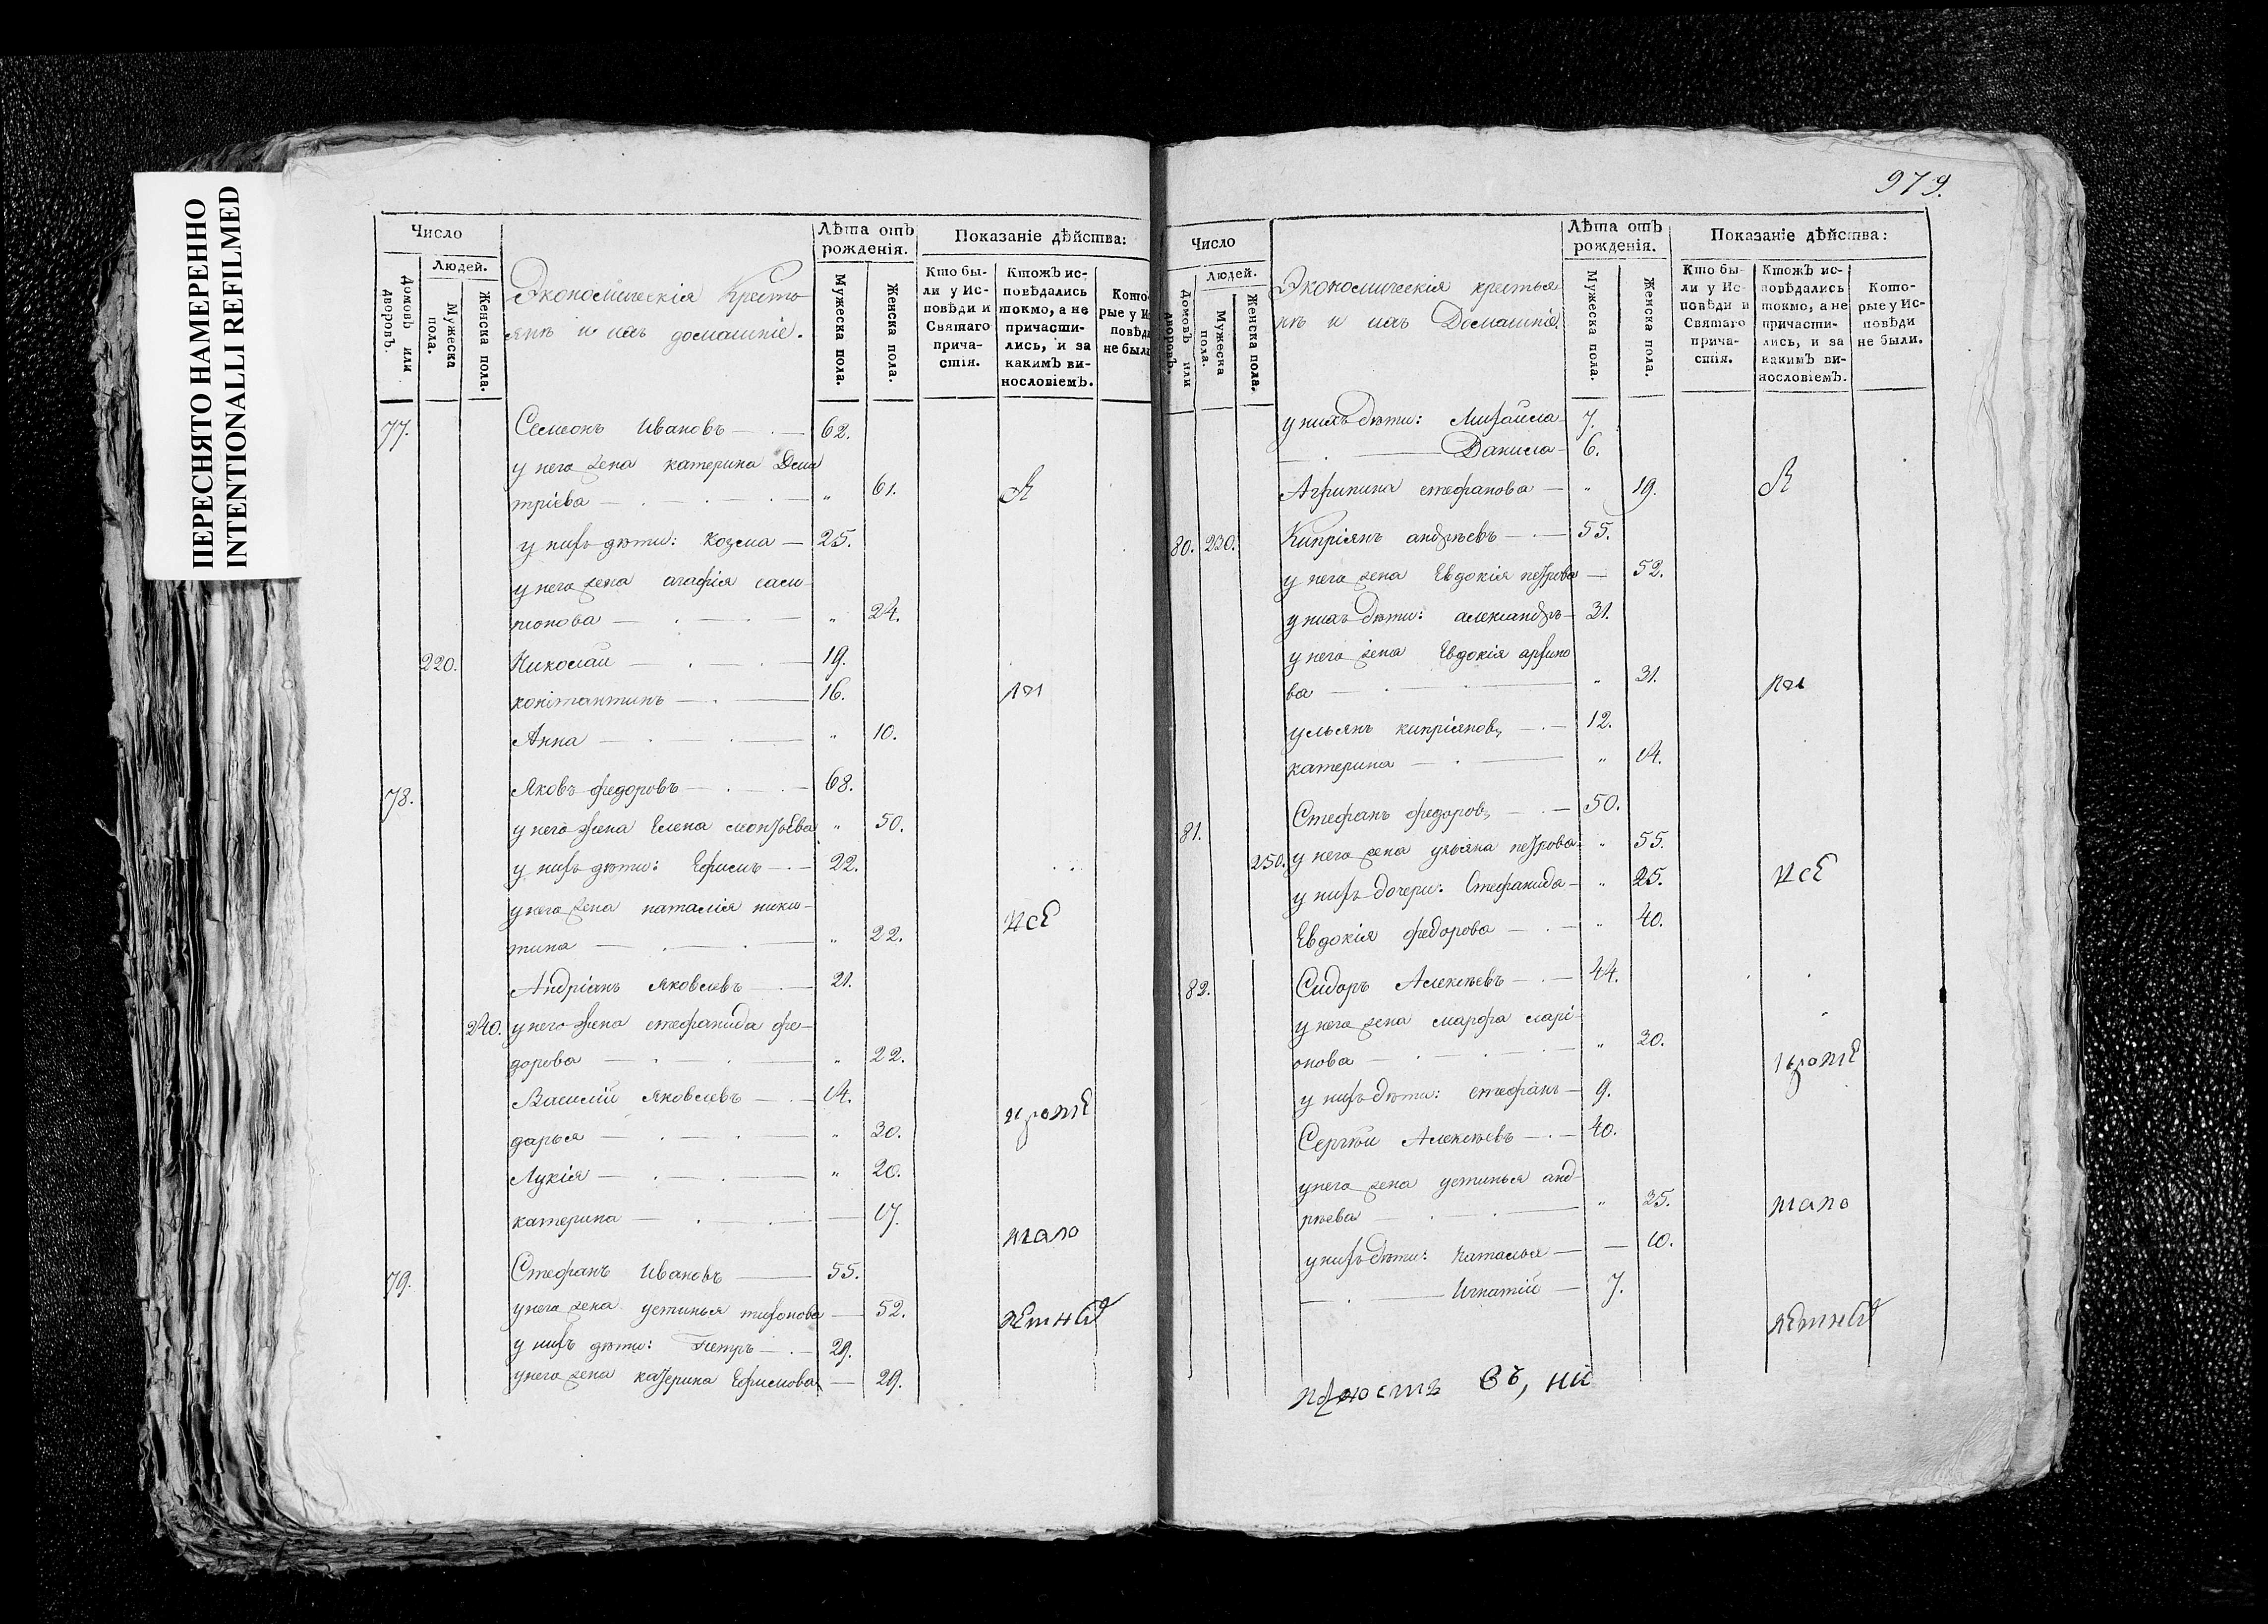 ПЕРЕСНЯТО НАМЕРЕННО
INTENTIONALLI REFILMED
Число
Людей.
Домовъ или дворовъ.
Мужеска пола.
Женска пола.
Экономическія Крестья
янѣ и ихъ домашніе.
Лѣта отъ рожденія.
Мужеска пола.
Женска пола.
Показаніе дѣйства:
Кто бы-
ли у Ис-
повѣди и
Святаго
прича-
стія.
Ктожъ ис-
повѣдались
токмо, а не
причасти-
лись, и за
какимъ ви-
нословіемъ.
Кото
рые у И
повѣд
не был
77. Семионъ Ивановъ 62.
у него жена катерина Дми
тріева " 61.
у нихъ дѣти: Козма 25.
у него жена агафія
" 24.
220. Николай 19.
константинъ 16.
Анна " 10.
78. Яковъ федоровъ 68.
у него жена Елена " 50.
у нихъ дѣти: Ефимъ 22.
у него жена наталія ники-
тина " 22.
Андріанъ Яковлевъ 21.
240. у него жена стефанида фе-
дорова " 22.
Василій Яковлевъ 14.
дарья " 30.
Лукія " 20.
катерина 17.
79. Стефанъ Ивановъ 55.
у него жена устинья тихонова 52.
у нихъ дѣти: Петръ 29.
у него жена катерина Ефимова 29.
979.
Число
Людей.
Домовъ или дворовъ.
Мужеска пола.
Женска пола.
Экономическія крестья
нѣ и ихъ Домашнія
Лѣта отъ рожденія.
Мужеска пола.
Женска пола.
Показаніе дѣйства:
Кто бы-
ли у Ис-
повѣди и
Святаго
прича-
стія.
Ктожъ ис-
повѣдались
токмо, а не
причасти-
лись, и за
какимъ ви-
нословіемъ.
Кото-
рые у Ис-
повѣди
не были.
у нихъ дѣти: Михайла 7.
Данила 6.
Агрипина стефанова " 19.
80. 230. Кипріянъ андрѣевъ 55.
у него жена Евдокія петрова 52.
у нихъ дѣти: александръ 31.
у него жена Евдокія архипо
ва " 31.
ульянъ кипріяновъ 12.
катерина " 14.
81. Стефанъ федоровъ 50.
250. у него жена ульяна петрова " 55.
у нихъ дочери: Стефанида " 25.
Евдокія федорова " 40.
82. Сидоръ Алексѣевъ 44.
у него жена марфа ларі
онова " 30.
у нихъ дѣти: стефанъ 9.
Сергѣй Алексѣевъ 40.
у него жена устинья анд
рѣева " 35.
у нихъ дѣти: Наталья 10.
Игнатій 7.